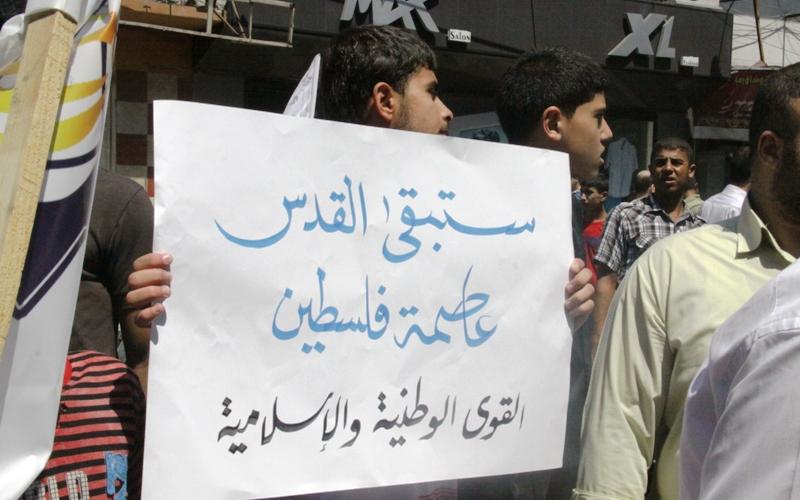 MAX
Salon
XL
ستبقى القدس
عاصمة فلسطين
القوى الوطنية والإسلامية